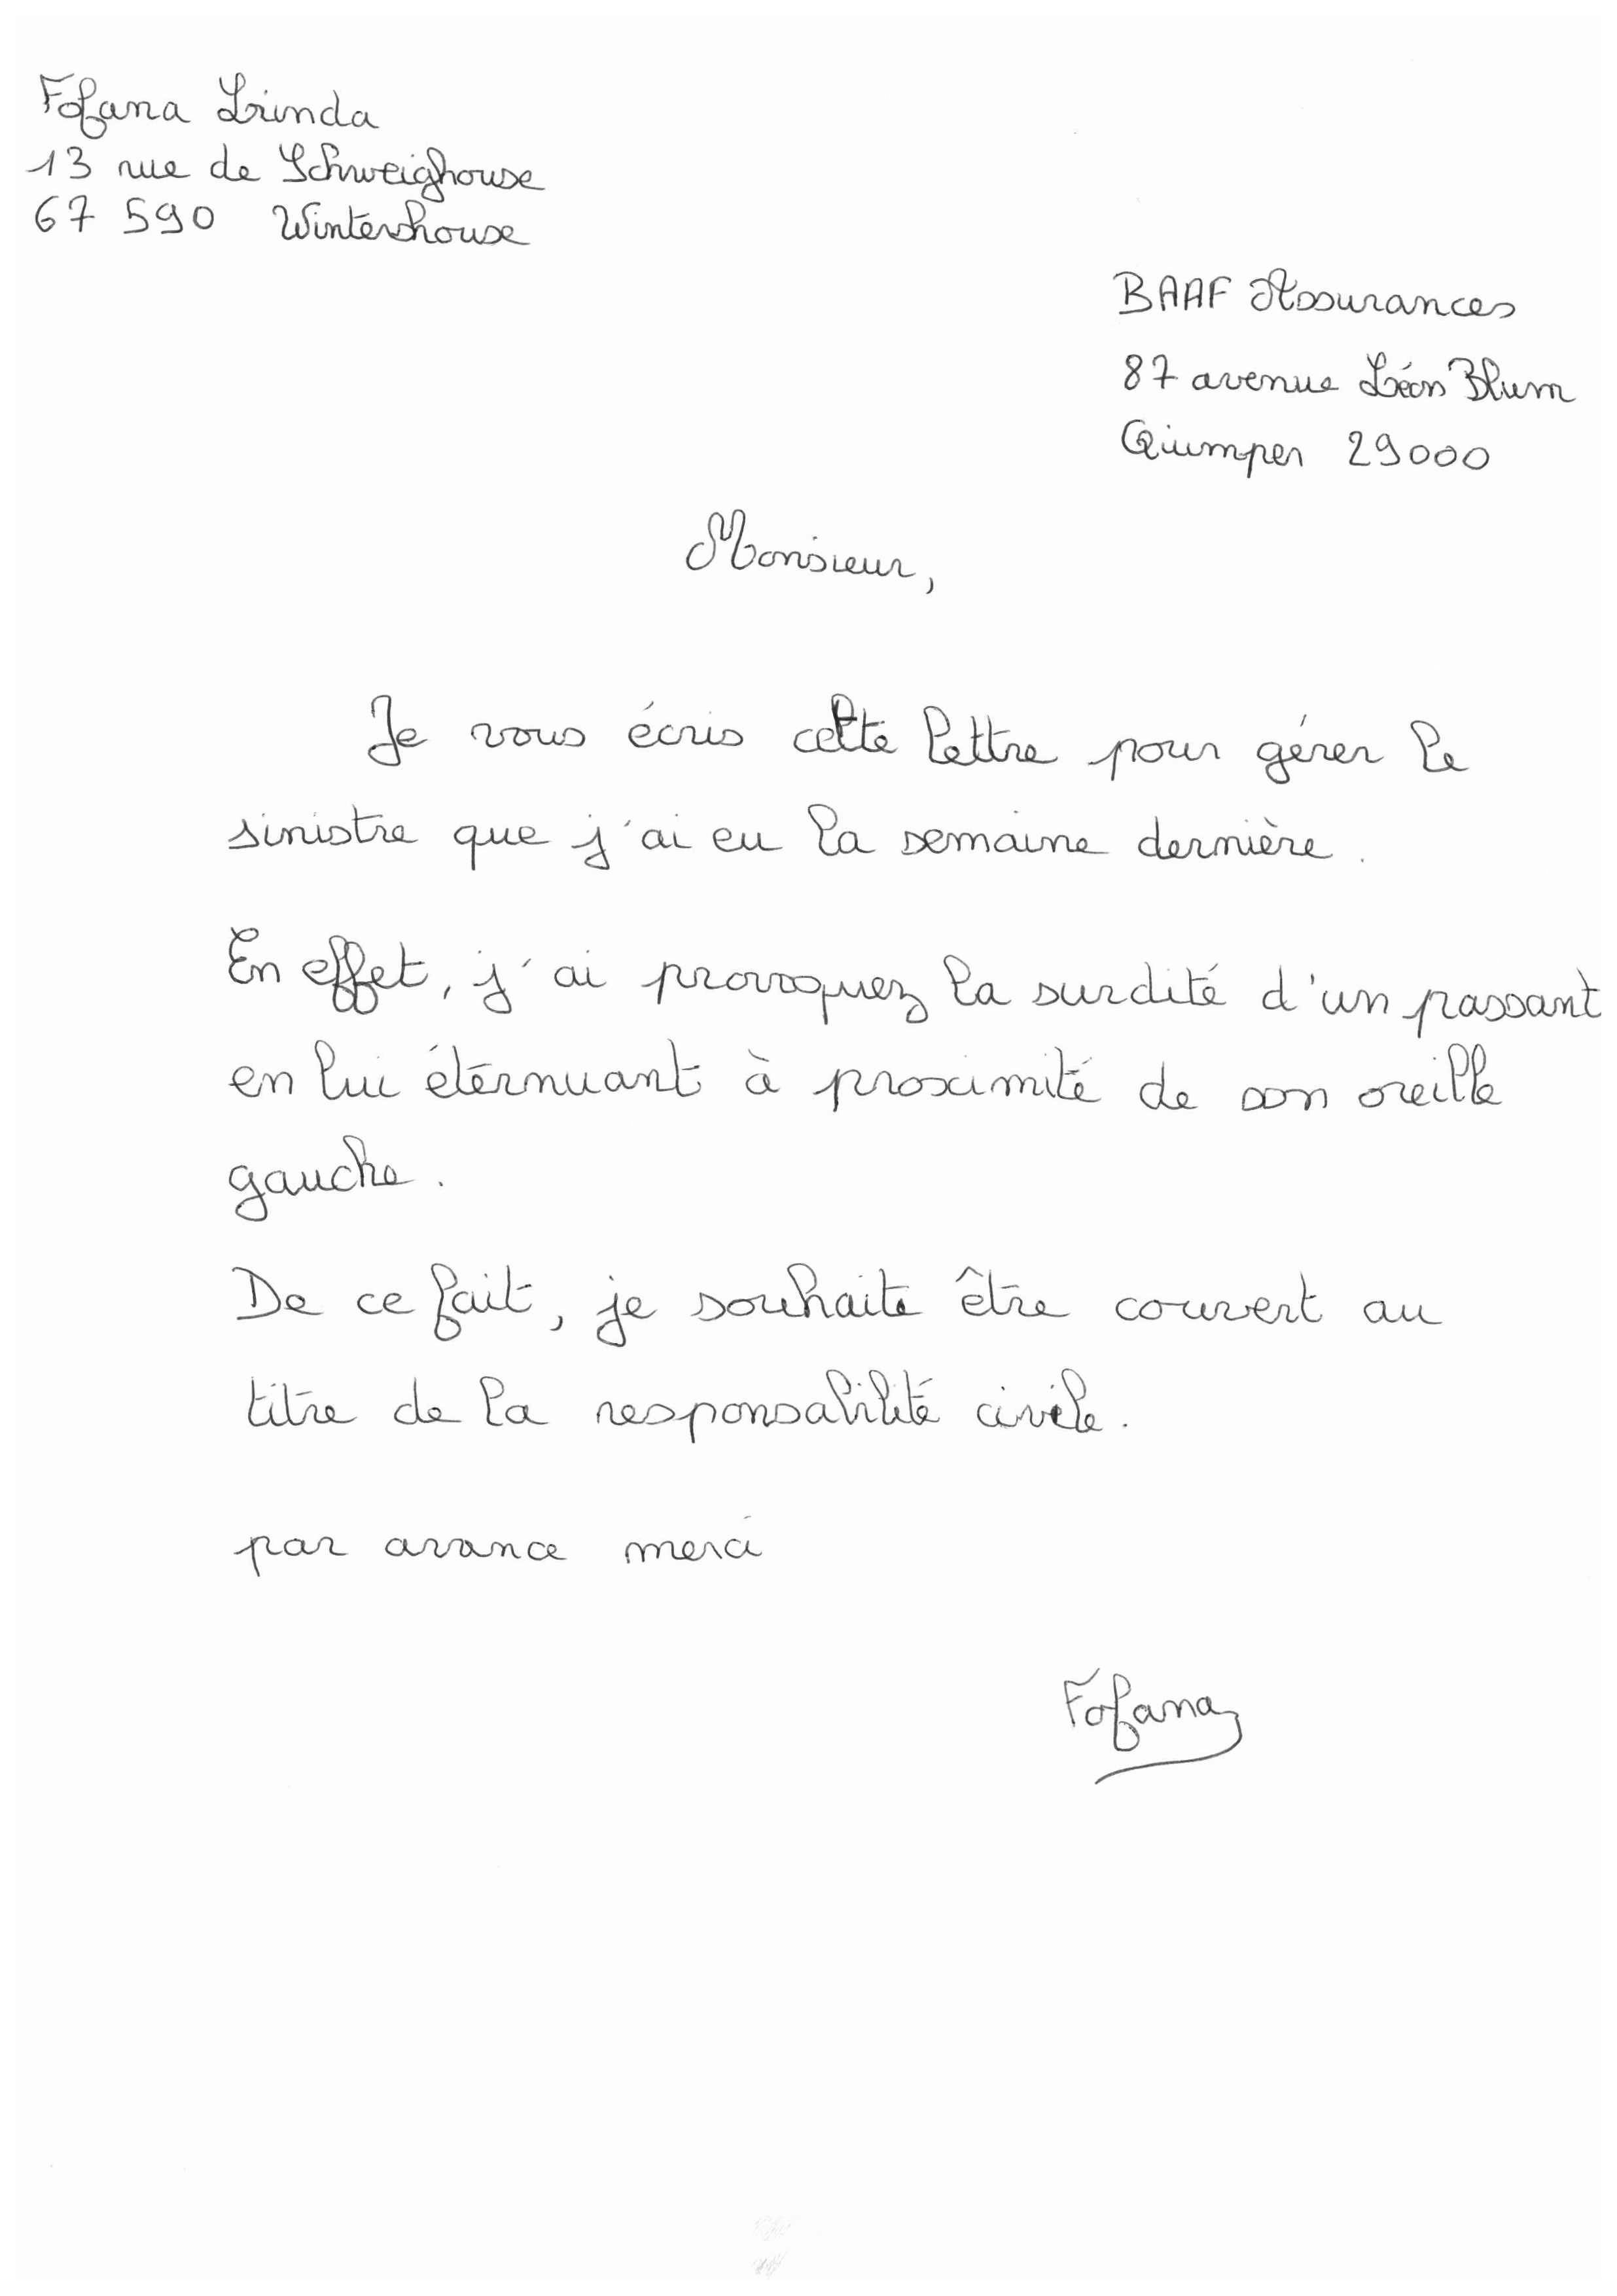 Fofana Linda
13 rue de Schweighouse
67 590 Wintershouse
BAAF Assurances
87 avenue Léon Blum
Quimper 29000
Monsieur,
Je vous écris cette lettre pour gérer le
sinistre que j'ai eu la semaine dernière.
En effet, j'ai provoquez la surdité d'un passant
en lui éternuant à proximité de son oreille
gauche.
De ce fait, je souhaite être couvert au
titre de la responsabilité civile.
par avance merci
Fofana